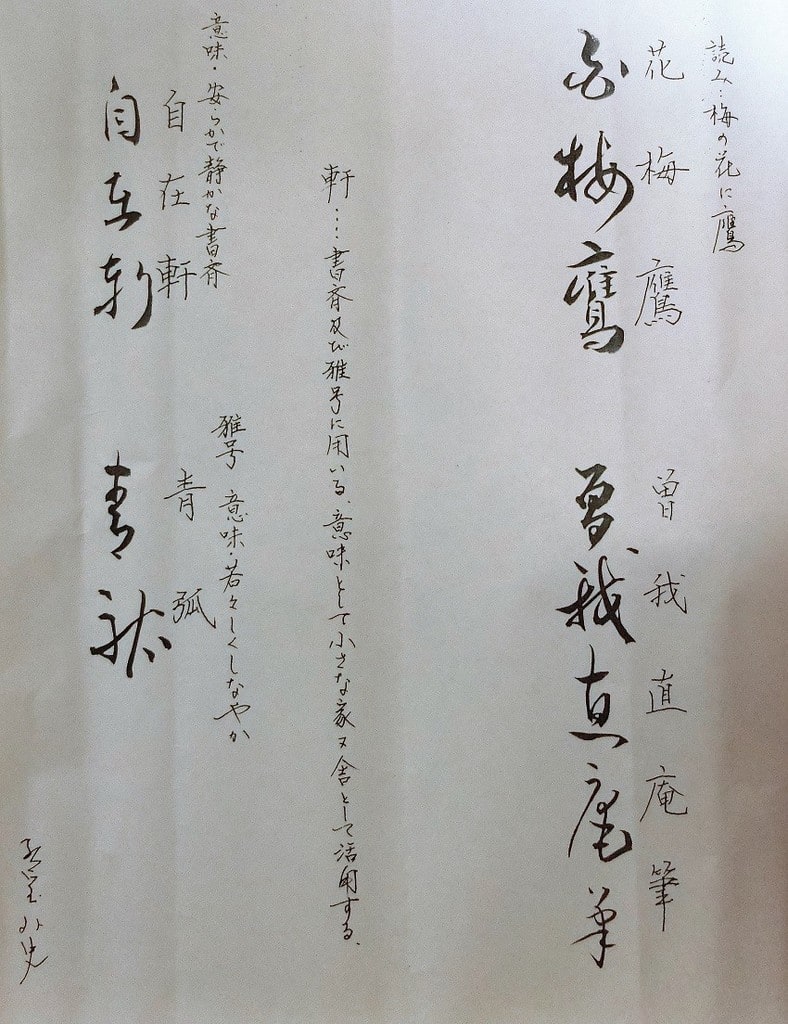 読み:梅の花に鷹
花梅鷹 曽我直庵筆
花梅鷹 曽我直庵筆
軒‥‥書斉及び雅号に用いる、意味として小さな家又舎として活用する、
意味・安らかで静かな書斉
雅号 意味・若々しくしなやか
自在軒 青弧
自在軒 青弧